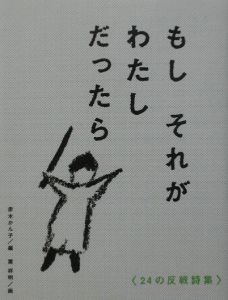 もし それが
わたし
だったら
赤木かん子/編 葉祥明/画
〈24の反戦詩集〉